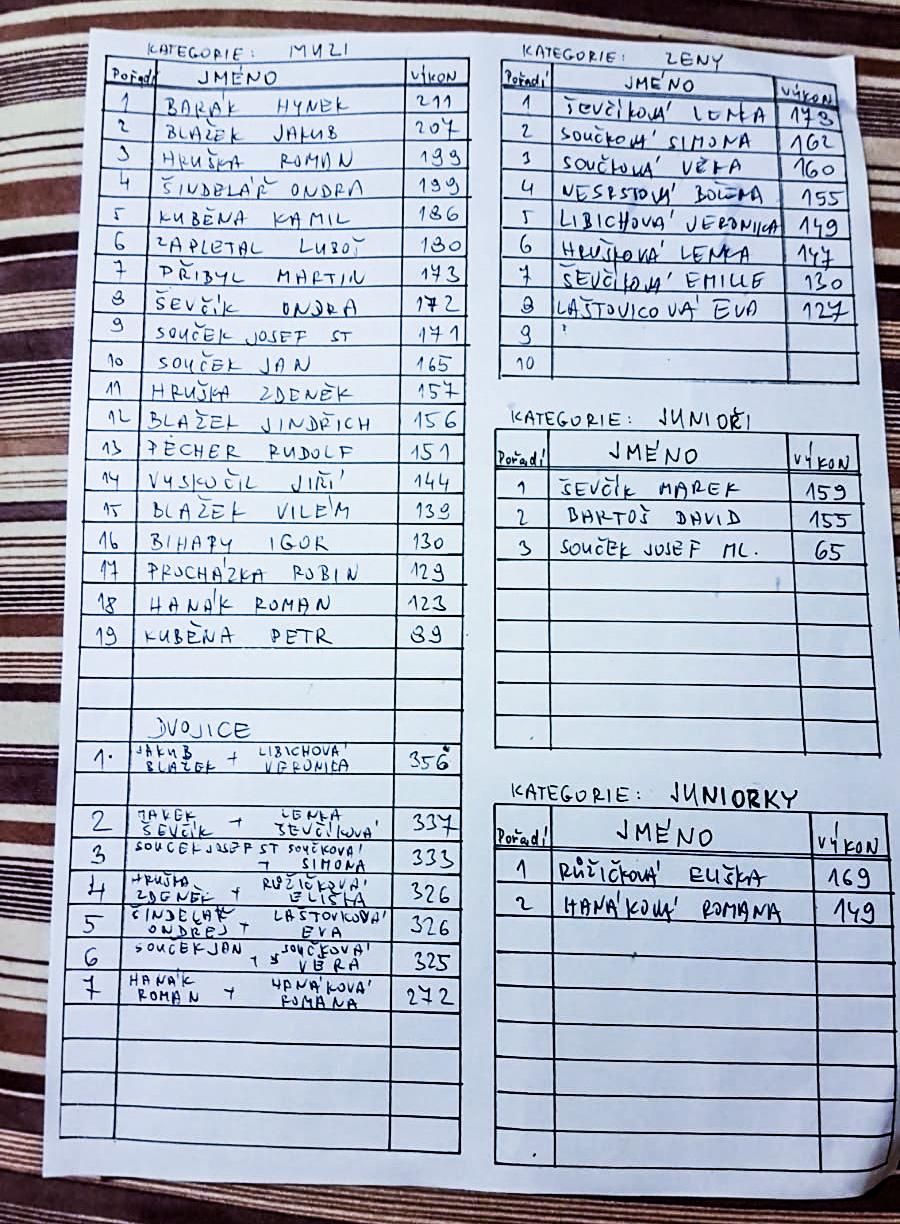 KATEGORIE: MUZI
Pořadí JMÉNO VÝKON
1 BARÁK HYNEK 211
2 BLAŽEK JAKUB 207
3 HRUŠKA ROMAN 199
4 ŠINDELÁŘ ONDRA 199
5 KUBĚNA KAMIL 186
6 ZAPLETAL LUBOŠ 180
7 PŘIBYL MARTIN 173
8 ŠEVČÍK ONDRA 172
9 SOUČEK JOSEF ST 171
10 SOUČEK JAN 165
11 HRUŠKA ZDENĚK 157
12 BLAŽEK JINDŘICH 156
13 PECHER RUDOLF 151
14 VYSKOČIL JIŘÍ 144
15 BLAŽEK VILÉM 139
16 BIHARY IGOR 130
17 PROCHÁZKA ROBIN 129
18 HANÁK ROMAN 123
19 KUBĚNA PETR 89
DVOJICE
1. JAKUB BLAŽEK + LIBICHOVÁ VERONIKA 356
2 MAREK ŠEVČÍK + LENKA ŠEVČÍKOVÁ 337
3 SOUČEK JOSEF ST + SOUČKOVÁ SIMONA 333
4 HRUŠKA ZDENĚK + RŮŽIČKOVÁ ELIŠKA 326
5 ŠINDELÁŘ ONDREJ + LAŠTOVKOVÁ EVA 326
6 SOUČEK JAN + SOUČKOVÁ VĚRA 325
7 HANÁK ROMAN + HANÁKOVÁ ROMANA 272
KATEGORIE: ZENY
Pořadí JMÉNO VÝKON
1 ŠEVČÍKOVÁ LENKA 178
2 SOUČKOVÁ SIMONA 162
3 SOUČKOVÁ VĚRA 160
4 NESRSTOVÁ BOŽENA 155
5 LIBICHOVÁ VERONIKA 149
6 HRUŠKOVÁ LENKA 147
7 ŠEVČÍKOVÁ EMILIE 130
8 LAŠTOVICOVÁ EVA 127
9
10
KATEGORIE: JUNIOŘI
Pořadí JMÉNO VÝKON
1 ŠEVČÍK MAREK 159
2 BARTOŠ DAVID 155
3 SOUČEK JOSEF ML. 65
KATEGORIE: JUNIORKY
Pořadí JMÉNO VÝKON
1 RŮŽIČKOVÁ ELIŠKA 169
2 HANÁKOVÁ ROMANA 149